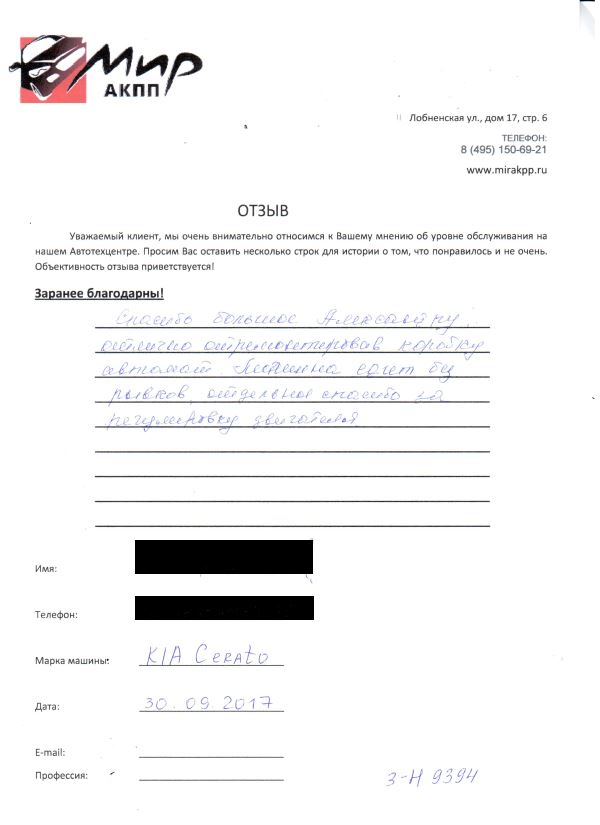 Мир
АКПП
Лобненская ул., дом 17, стр. 6
ТЕЛЕФОН:
8 (495) 150-69-21
www.mirakpp.ru
ОТЗЫВ
Уважаемый клиент, мы очень внимательно относимся к Вашему мнению об уровне обслуживания на
нашем Автотехцентре. Просим Вас оставить несколько строк для истории о том, что понравилось и не очень.
Объективность отзыва приветствуется!
Заранее благодарны!
Спасибо большое Александру,
отлично отремонтировав коробку
автомат. Машинка едет без
рывков, отдельное спасибо за
регулировку двигателя
Имя:
Телефон:
Марка машины: KIA Cerato
Дата: 30.09.2017
E-mail:
Профессия:
3-Н 9394